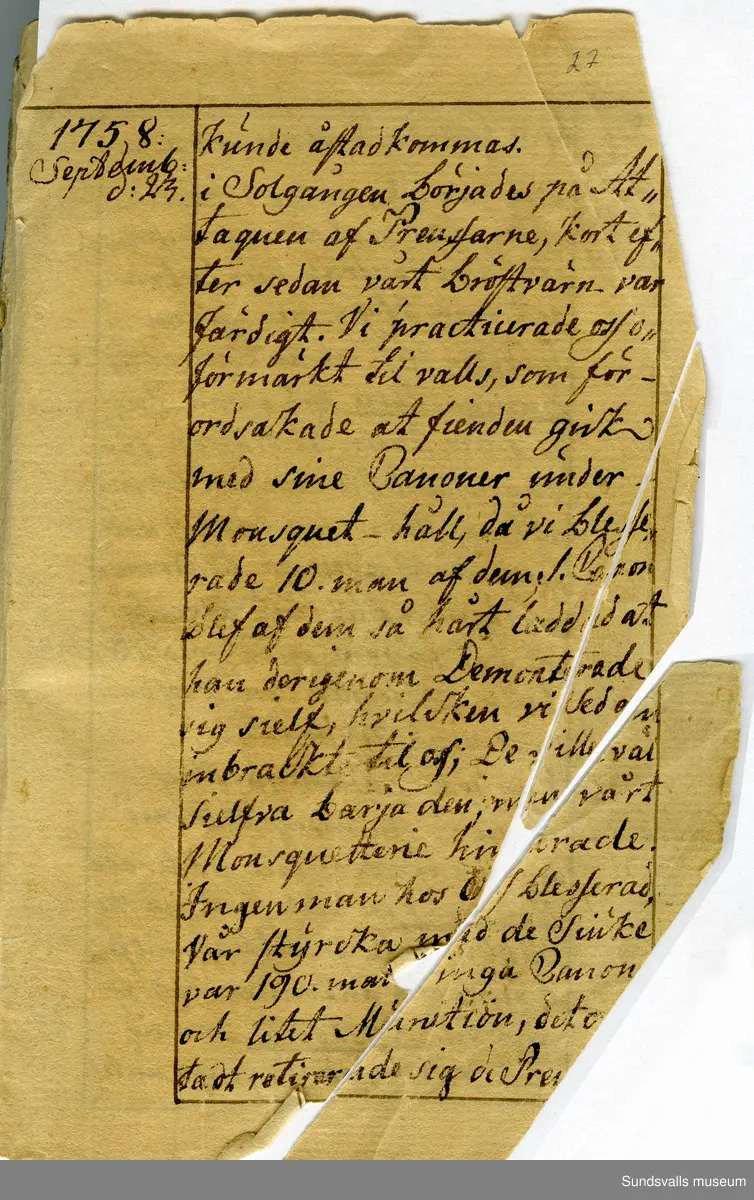 27
1758:
Septemb:
d: 23.
kunde åstadkommas.
i Solgången börjades på At„
taquen af Preussarne, kort ef„
ter sedan vårt bröstvärn var
färdigt. Vi practicerade oss o„
förmärkt til valls, som för-
ordsakade at fienden gick
med sine Canoner under
Mousquet-håll, då vi blesse„
rade 10. man af dem, 1. Canon
blef af dem så hårt laddad at
han derigenom Demonterade
sig sielf, hvilcken vi sedan
inbrackte til oss; De ville väl
sielfva bärja den, men vårt
Mousquetterie hindrade.
Ingen man hos Oss blesserad,
Vår styrcka med de Siuke
var 190. man inga Canon
och litet Munition, det
tadt retirerade sig de Preu
Sundsvalls museum